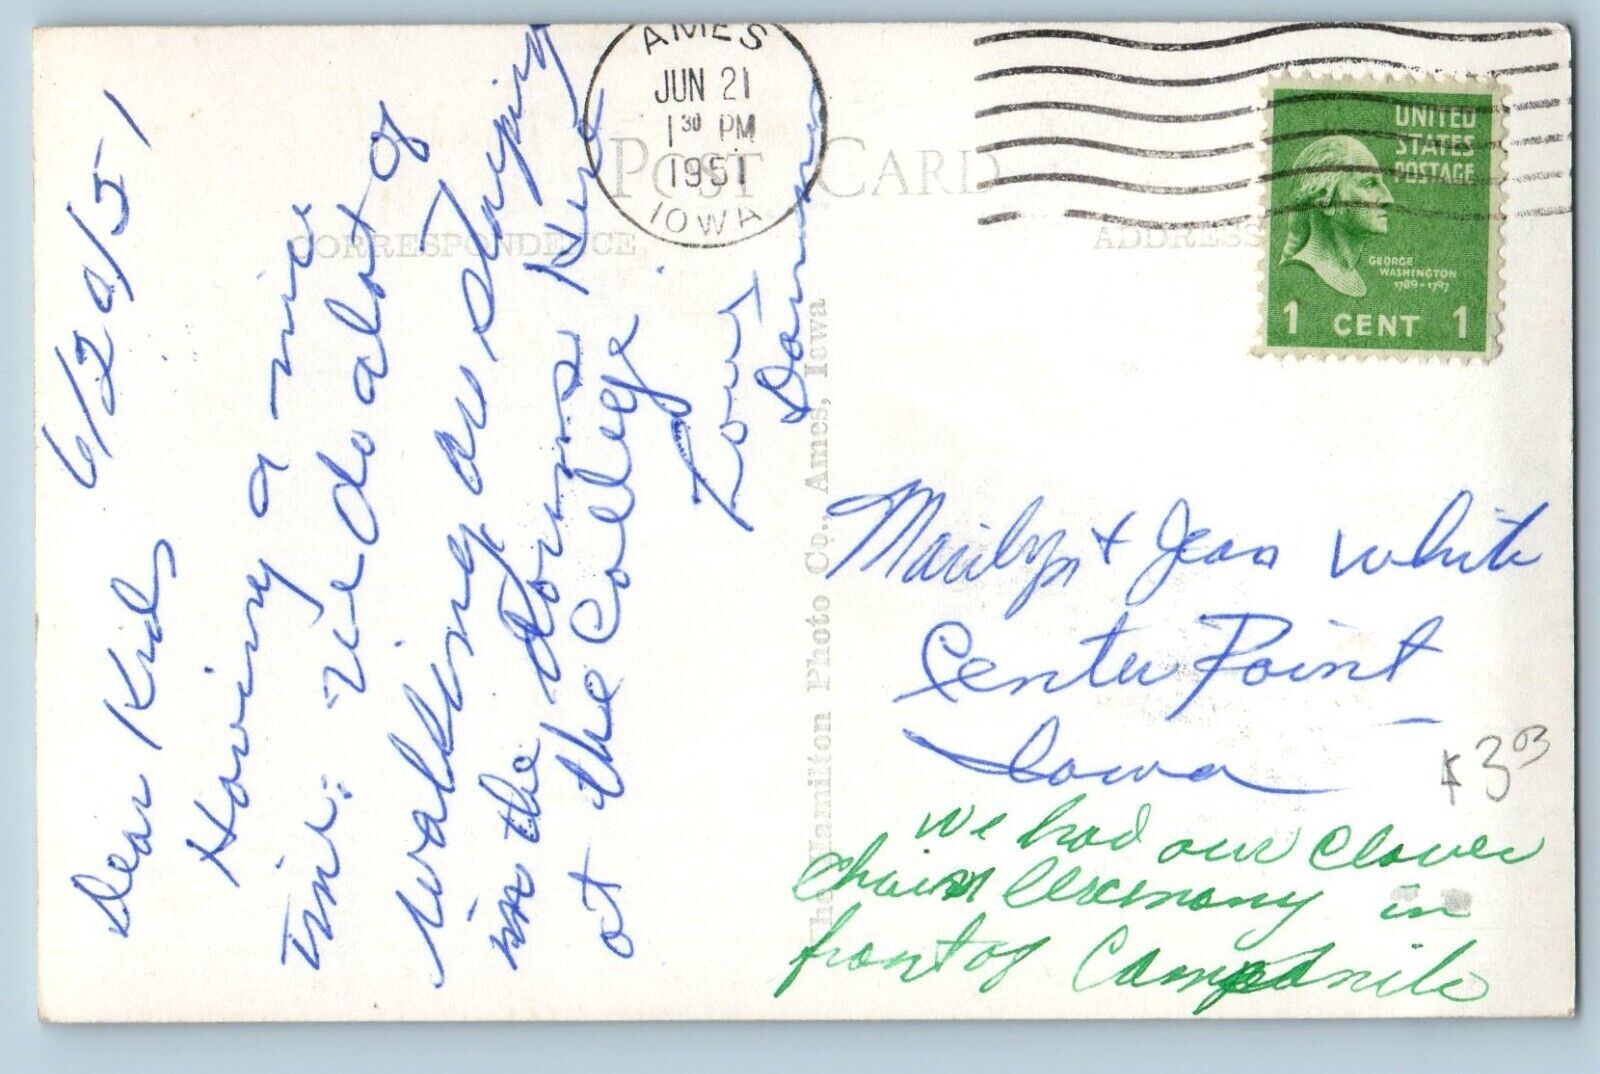 6/20/51
Dear Kids
Having a nice
time. We do alot of
walking are staying
in the dorms here
at the College
Love
POST CARD
CORRESPONDENCE
ADDRESS
AMES
JUN 21
1 30 PM
1951
IOWA
UNITED
STATES
POSTAGE
GEORGE
WASHINGTON
1789-1797
1 CENT 1
The Hamilton Photo Co., Ames, Iowa
Marilyn + Jean White
Center Point
Iowa
$3.03
We had our Clover
Chain Ceremony in
front of Campanile